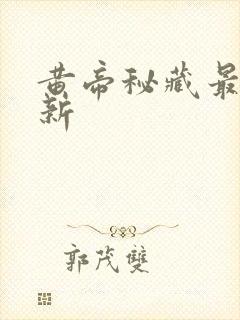 黄帝秘藏最
新
郭茂雙